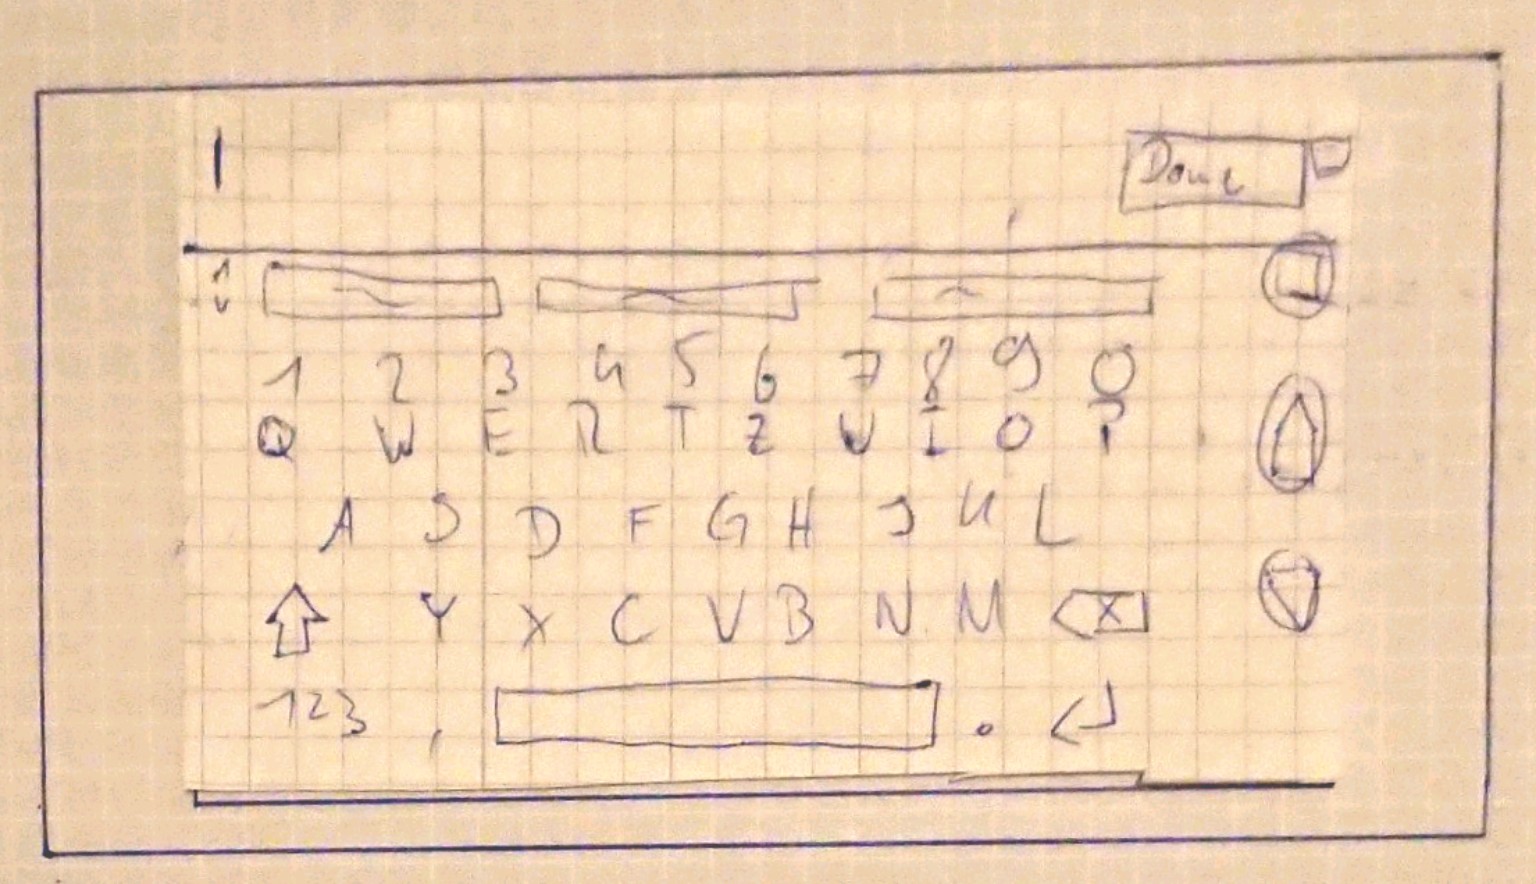 Done
1 2 3 4 5 6 7 8 9 0
Q W E R T Z U I O P
A S D F G H J K L
Y X C V B N M X
123 , .